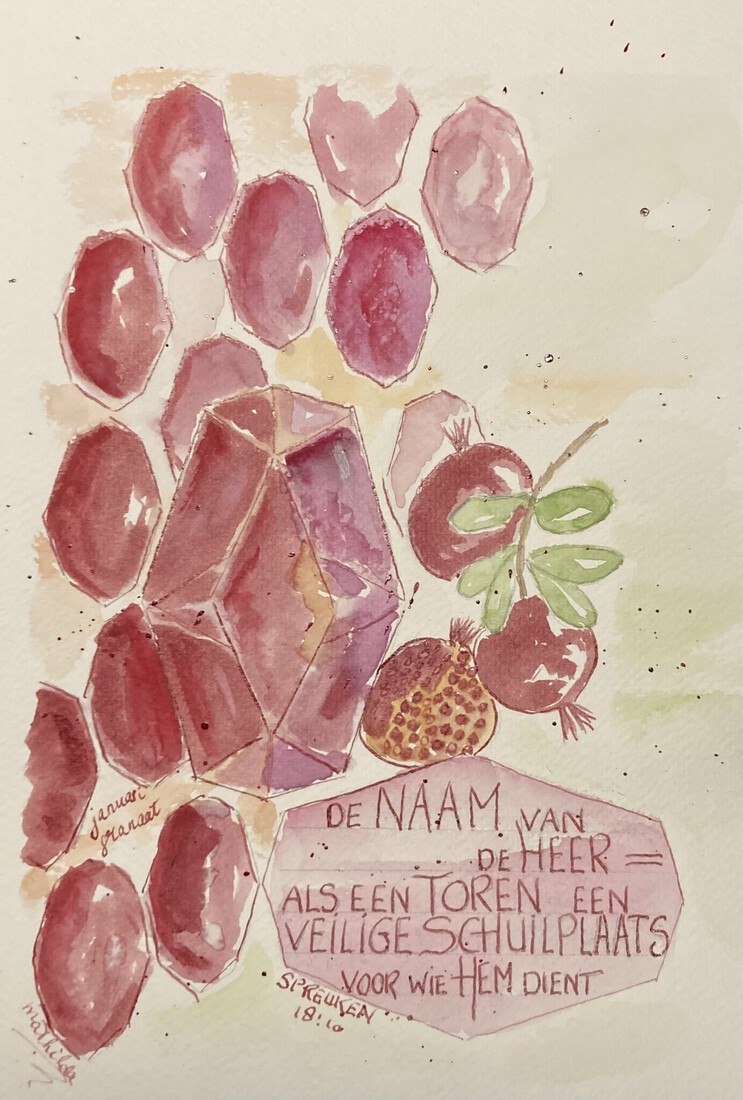 januari
granaat
DE NAAM VAN
DE HEER =
ALS EEN TOREN EEN
VEILIGE SCHUILPLAATS
VOOR WIE HEM DIENT
SPREUKEN
18:10
mathilde